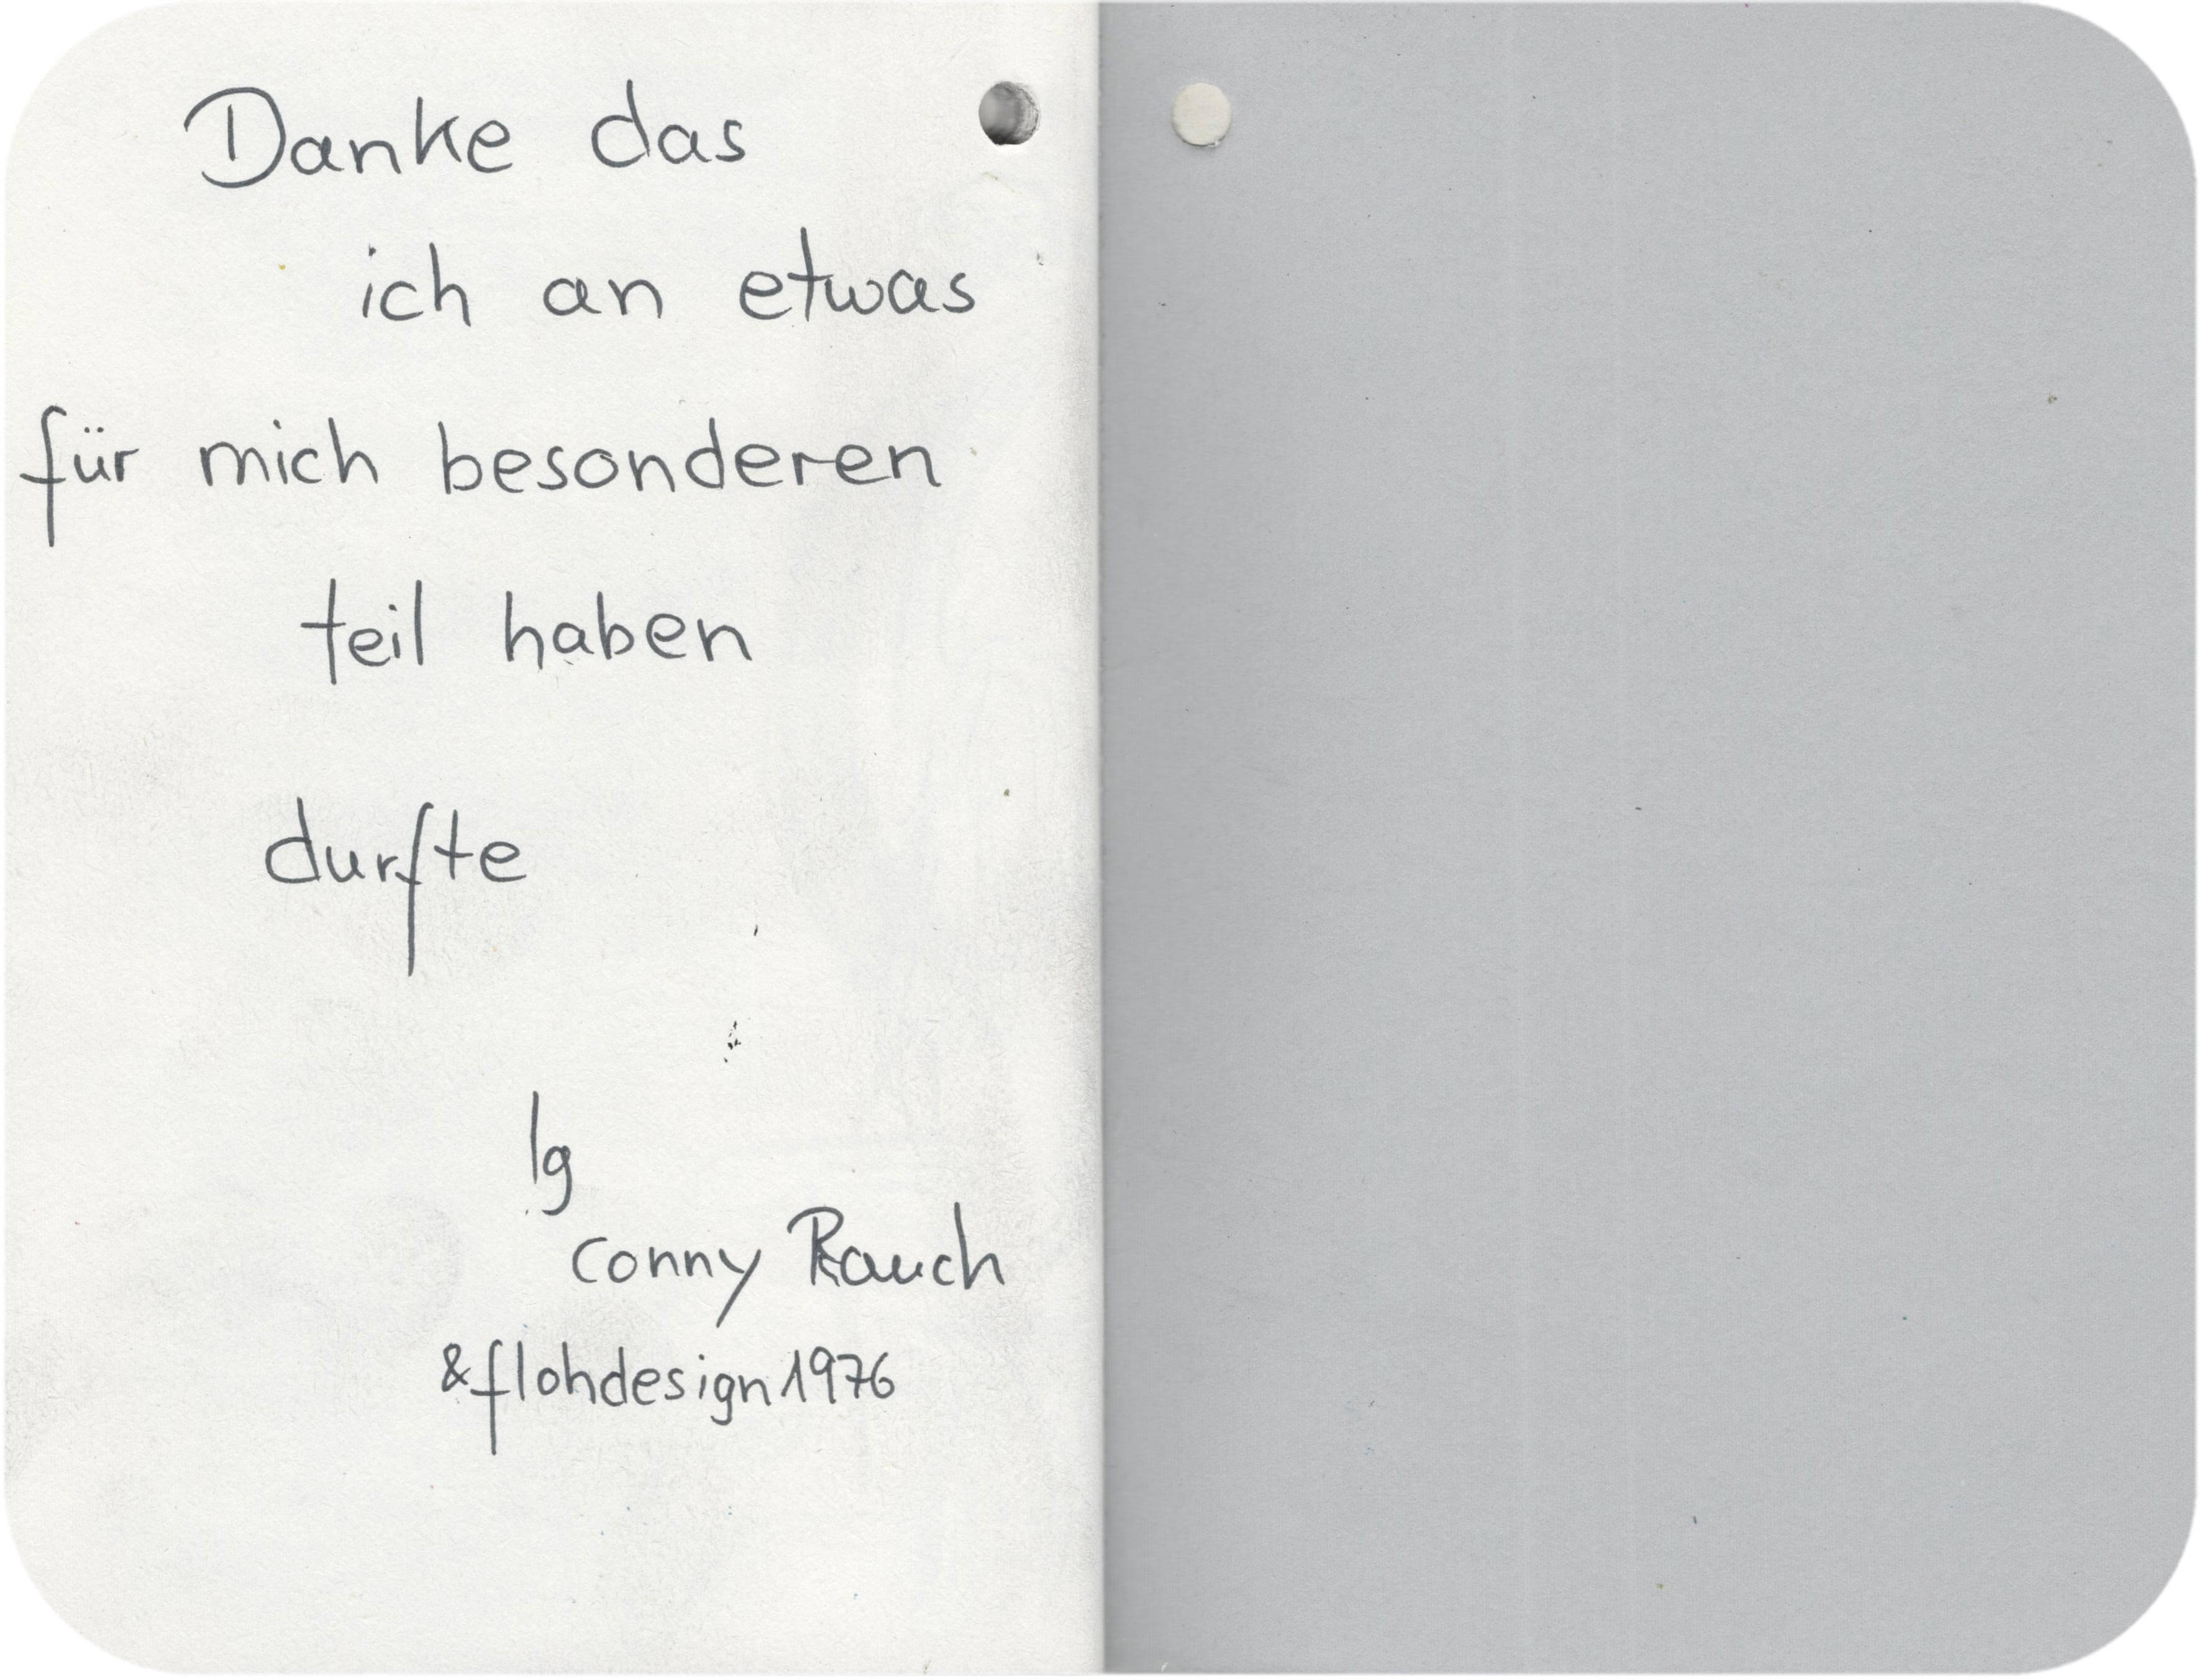 Danke das
ich an etwas
für mich besonderen
teil haben
durfte
lg
conny Rauch
&flohdesign1976